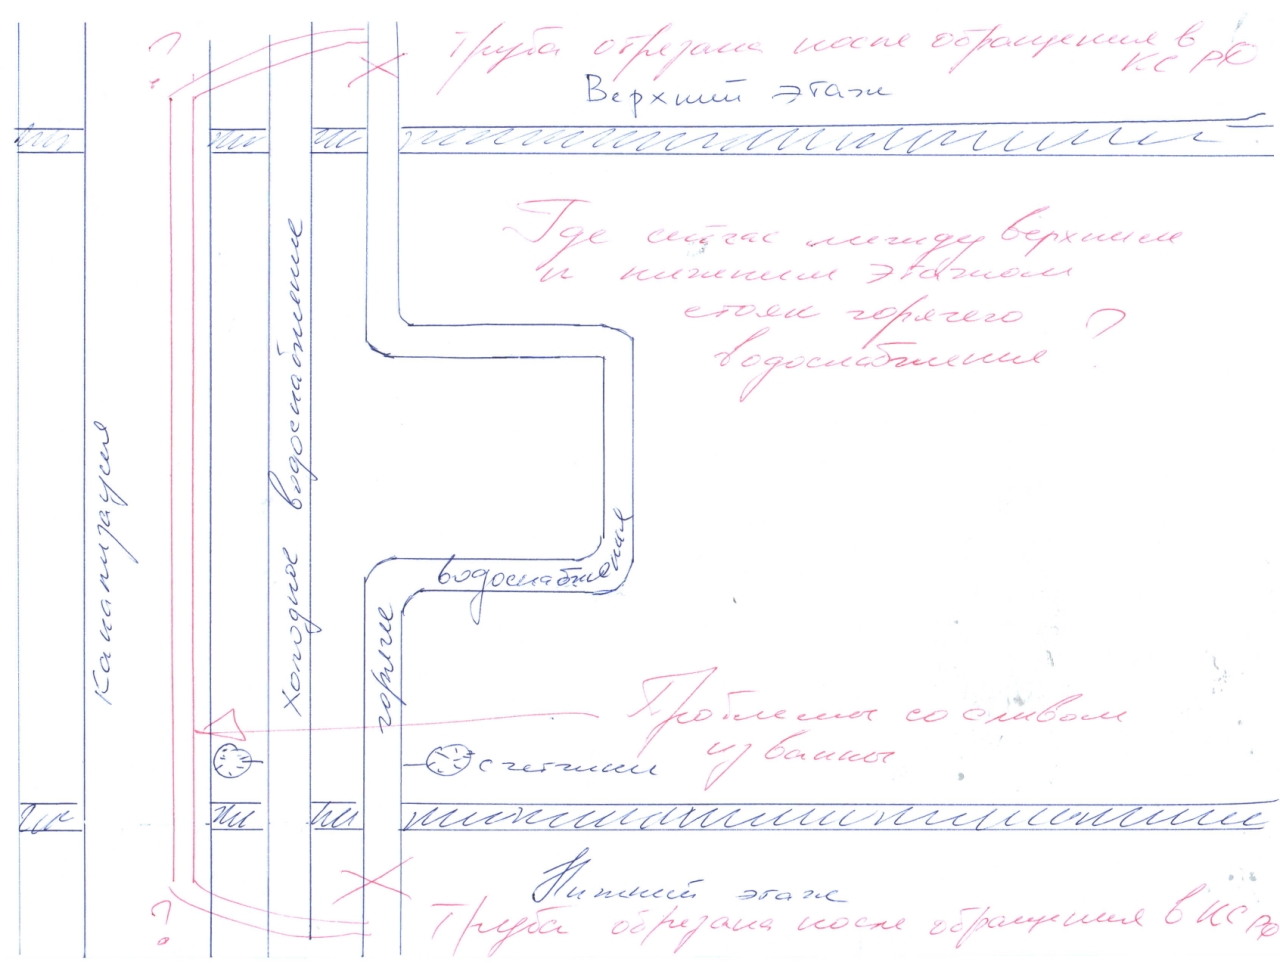 ?
Труба отрезана после обращения в
КС РФ
Верхний этаж
Где сейчас между верхним
и нижним этажом
стояк горячего
водоснабжения ?
Канализация
Холодное водоснабжение
горячее
водоснабжения
Проблемы со сливом
из ванны
счетчики
Нижний этаж
?
Труба обрезана после обращения в КС РФ